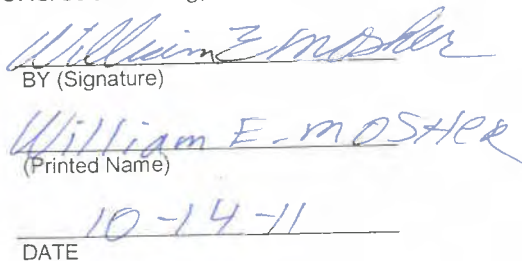 William E Mosher
BY (Signature)
William E. MOSHER
(Printed Name)
10-14-11
DATE